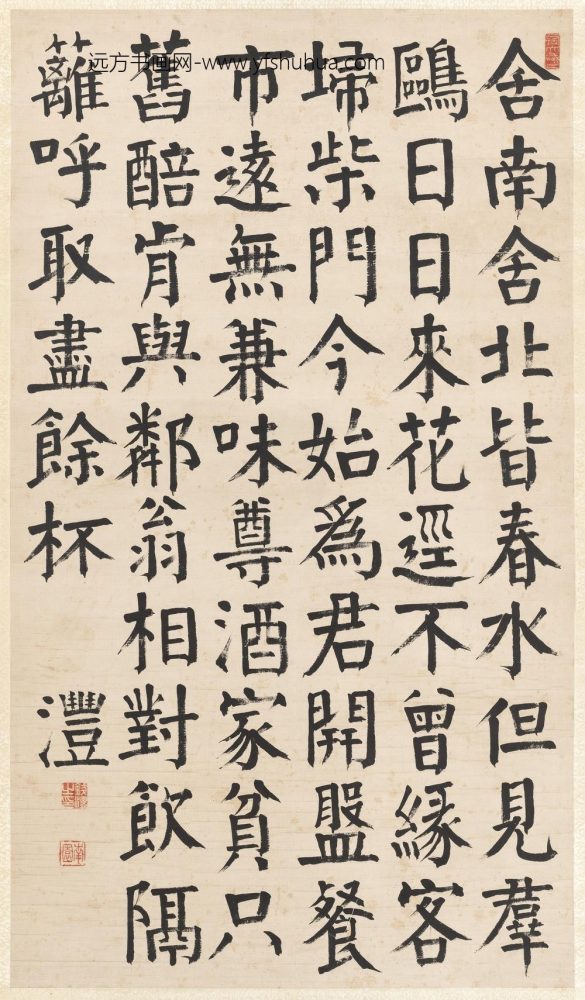 远方书画网-www.yfshuhua.com
舍南舍北皆春水但見羣
鷗日日來花逕不曾緣客
埽柴門今始爲君開盤餐
市遠無兼味尊酒家貧只
舊醅肯與鄰翁相對飲隔
籬呼取盡餘杯
澧